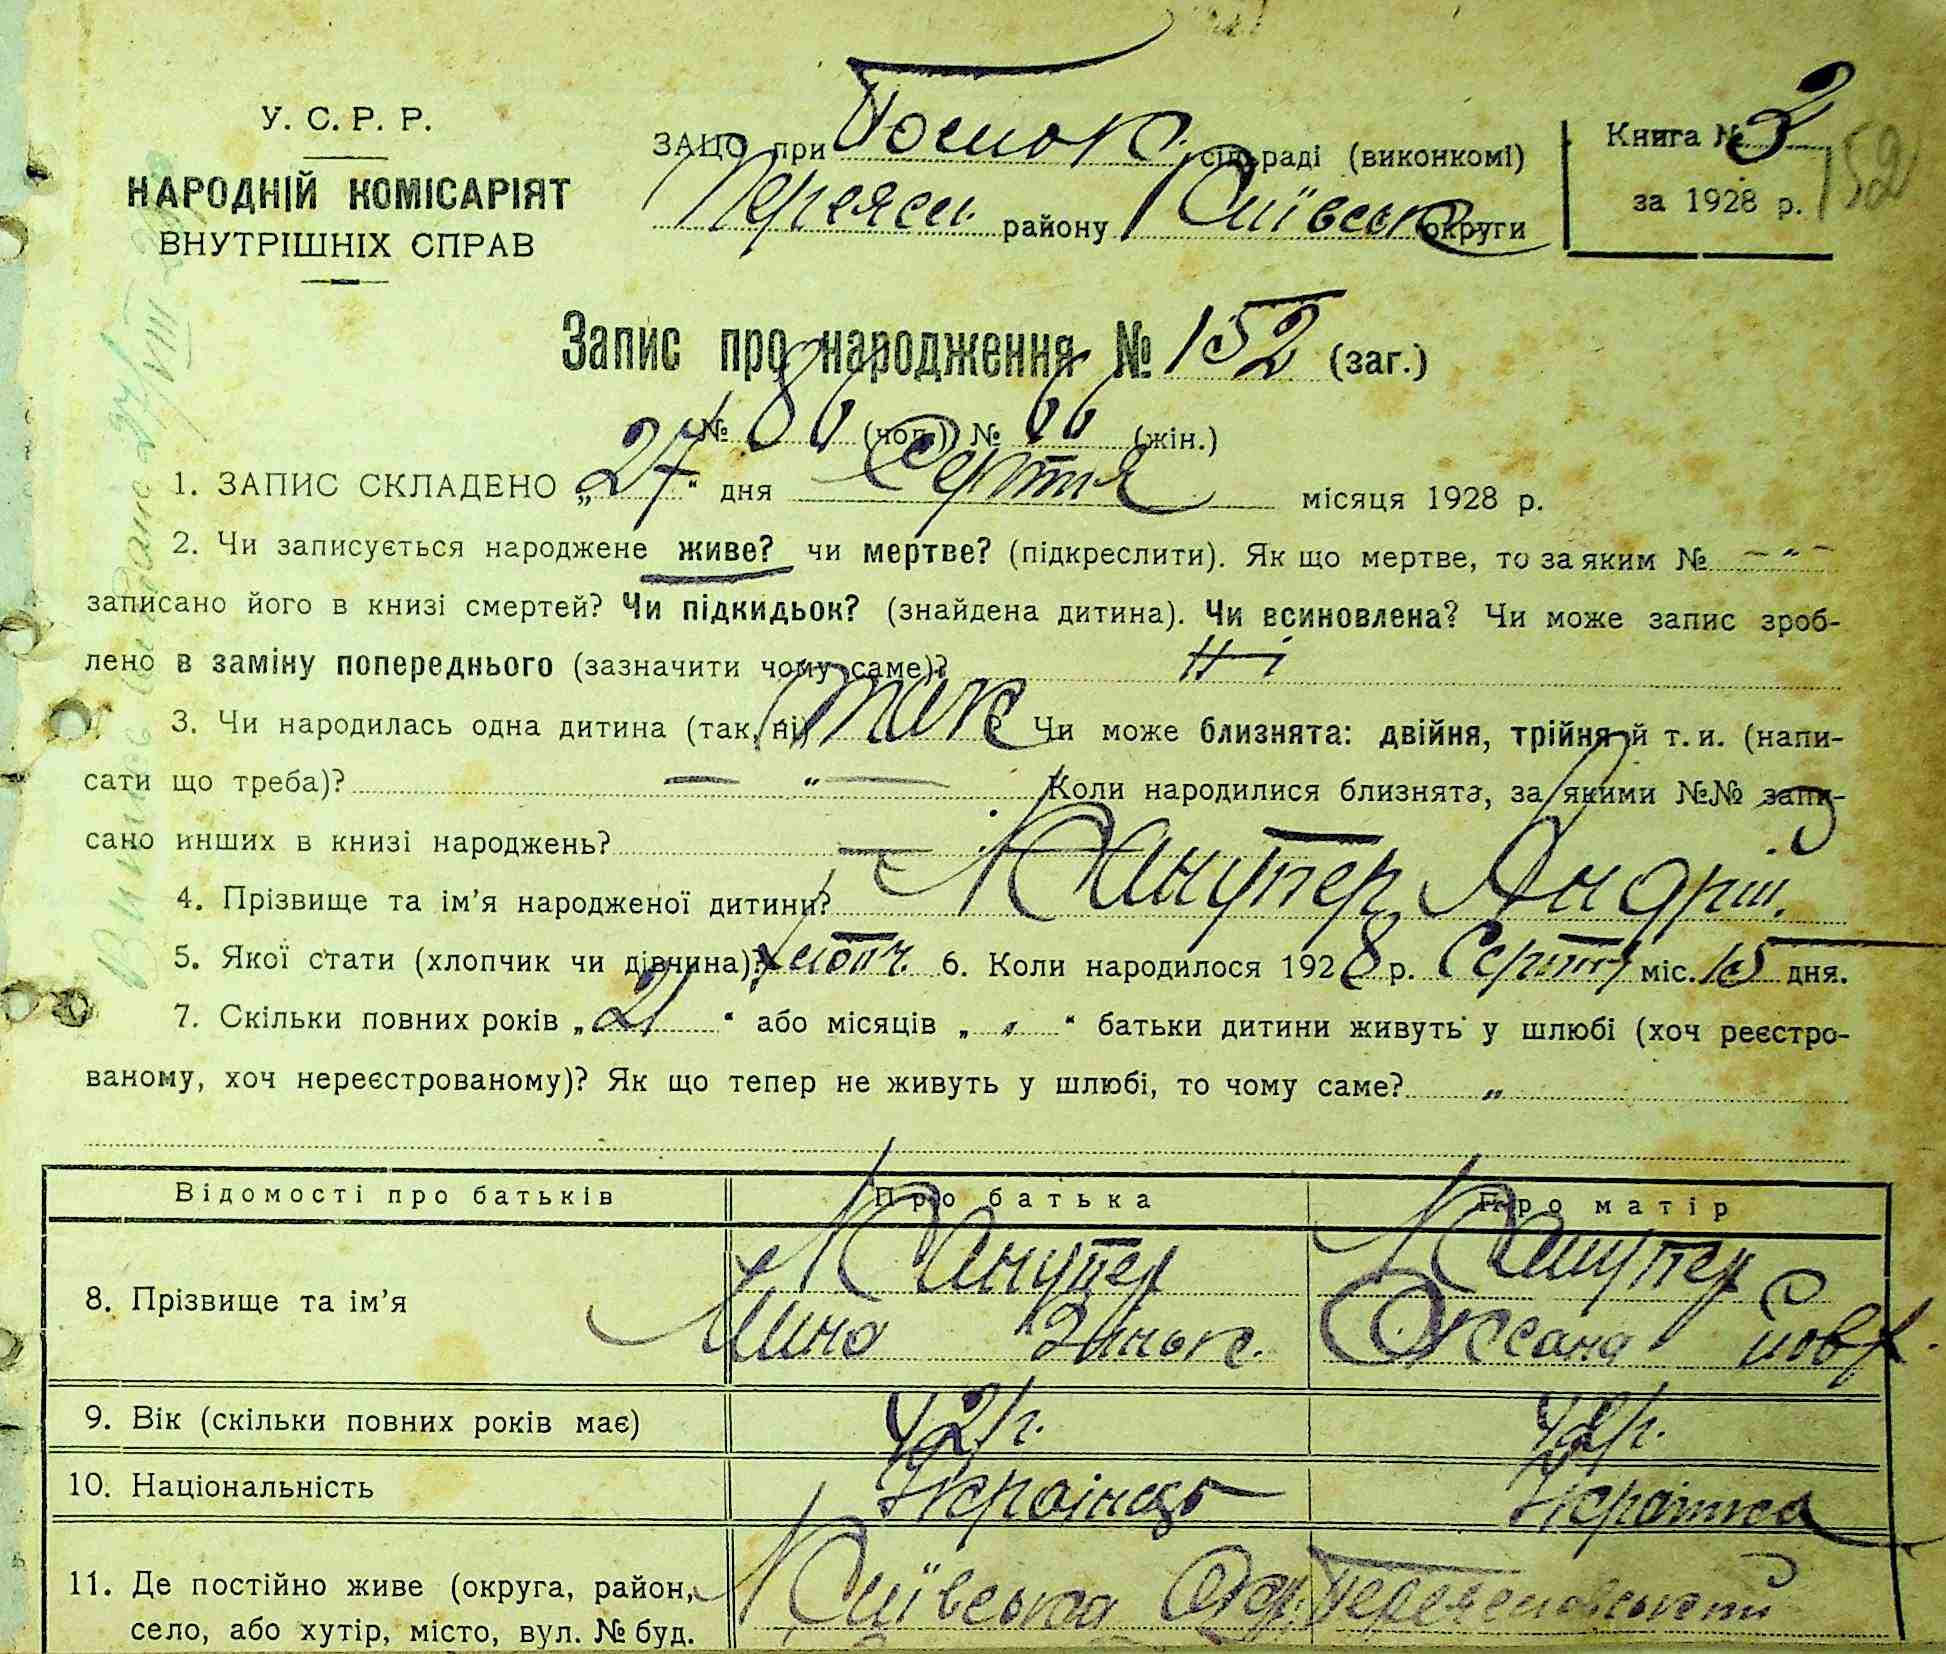 У. С. Р. Р.
НАРОДНІЙ КОМІСАРІЯТ
ВНУТРІШНІХ СПРАВ
ЗАЦО при сільраді (виконкомі)
Переясл. району Київськ округи
Книга № 3
за 1928 р.
152
Запис про народження № 152 (заг.)
№ 86 (чол.) № 66 (жін.)
1. ЗАПИС СКЛАДЕНО „27“ дня Серпня місяця 1928 р.
2. Чи записується народжене живе? чи мертве? (підкреслити). Як що мертве, то за яким № — „ —
записано його в книзі смертей? Чи підкидьок? (знайдена дитина). Чи всиновлена? Чи може запис зроб-
лено в заміну попереднього (зазначити чому саме)? Ні
3. Чи народилась одна дитина (так, ні) так? Чи може близнята: двійня, трійня й т. и. (напи-
сати що треба)? — „ — Коли народилися близнята, за якими №№ запи-
сано инших в книзі народжень? —
4. Прізвище та ім’я народженої дитини? Канупер Андрій.
5. Якої стати (хлопчик чи дівчина)? хлопч. 6. Коли народилося 1928 р. Серпня міс. 15 дня.
7. Скільки повних років „21“ або місяців „ „ “ батьки дитини живуть у шлюбі (хоч реєстро-
ваному, хоч нереєстрованому)? Як що тепер не живуть у шлюбі, то чому саме? „
Відомості про батьків Про батька Про матір
8. Прізвище та ім’я Канупер Канупер
Мина Зиньк. Оксана
9. Вік (скільки повних років має) 42 р. 42 р.
10. Національність Українець Українка
11. Де постійно живе (округа, район, Київська Окр. Переяславський
село, або хутір, місто, вул. № буд.